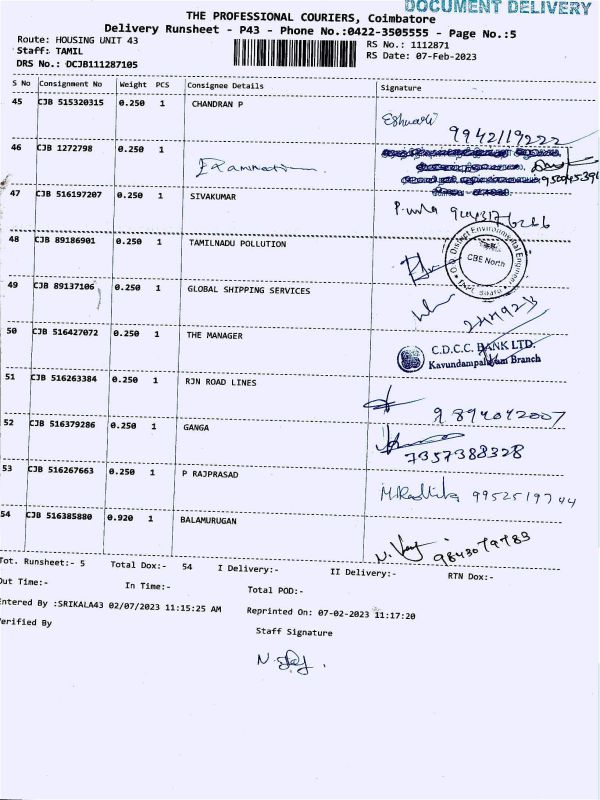 DOCUMENT DELIVERY
THE PROFESSIONAL COURIERS, Coimbatore
Delivery Runsheet - P43 - Phone No.:0422-3505555 - Page No.:5
Route: HOUSING UNIT 43 RS No.: 1112871
Staff: TAMIL RS Date: 07-Feb-2023
DRS No.: DCJB111287105
S No Consignment No Weight PCS Consignee Details Signature
45 CJB 515320315 0.250 1 CHANDRAN P
Eshwari
9942119222
46 CJB 1272798 0.250 1
47 CJB 516197207 0.250 1 SIVAKUMAR
48 CJB 89186901 0.250 1 TAMILNADU POLLUTION
District Environmental Engineer
CBE North
49 CJB 89137106 0.250 1 GLOBAL SHIPPING SERVICES
50 CJB 516427072 0.250 1 THE MANAGER
C.D.C.C. BANK LTD.
Kavundampalayam Branch
51 CJB 516263384 0.250 1 RJN ROAD LINES
9894042007
52 CJB 516379286 0.250 1 GANGA
7357388328
53 CJB 516267663 0.250 1 P RAJPRASAD
M.Radhika 9952519744
54 CJB 516385880 0.920 1 BALAMURUGAN
9843079783
Tot. Runsheet:- 5 Total Dox:- 54 I Delivery:- II Delivery:- RTN Dox:-
Out Time:- In Time:- Total POD:-
Entered By :SRIKALA43 02/07/2023 11:15:25 AM Reprinted On: 07-02-2023 11:17:20
Verified By Staff Signature